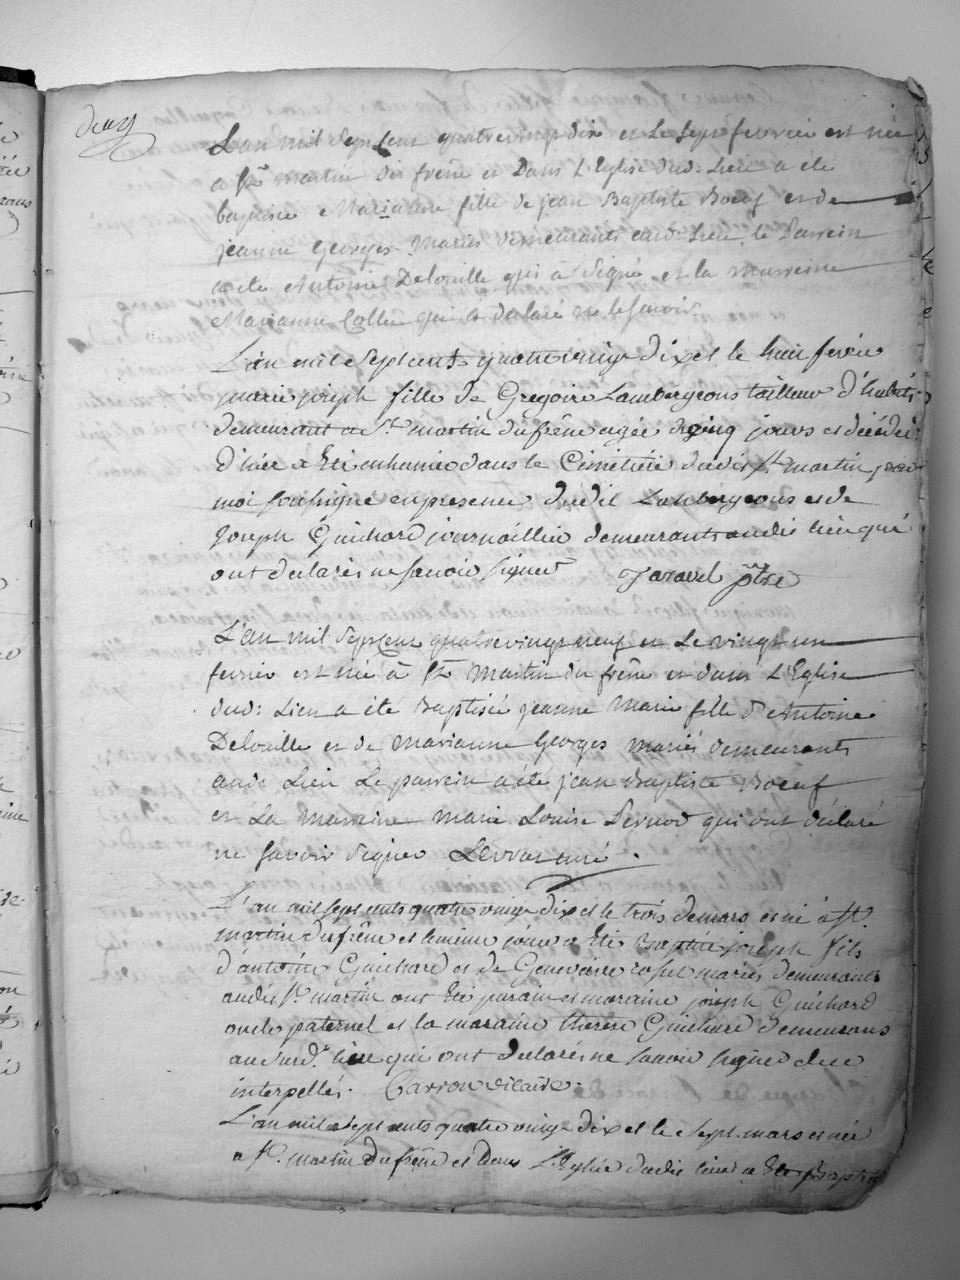 deux
L'an mil sept cent quatre vingt dix et Le sept fevrier est née
a St martin du frêne et Dans L'Eglise dud: Lieu a ete
baptisée Marianne fille de jean Baptiste Boeuf et de
jeanne Georges Mariés demeurants aud: Lieu, le Parrein
a ete Antoine Deloville qui a signé et la marreine
Marianne Collet qui a declaré ne le savoir
L'an mil sept cents quatre vingt dix et le huit fevrier
marie joseph fille de Gregoire Lambergeons tailleur d'habits
demeurant a St martin du frêne agée de cinq jours et décédée
d'hier a Eté enhumée dans le Cimétiére dudit St martin par
moi soussigné en presence dudit Lambergeons et de
Joseph Guichard journaillier demeurants audit lieu qui
ont declarés ne savoir signer Jaravel ptre
L'an mil sept cent quatre vingt neuf et Le vingt un
fevrier est née à St Martin du frêne et dans L'Eglise
dud: Lieu a éte Baptisée jeanne Marie fille d'Antoine
Deloville et de Marianne Georges mariés demeurants
aud: Lieu Le parrein a été jean Baptiste Boeuf
et La Marraine marie Louise Pernod qui ont déclaré
ne savoir signer curé
L'an mil sept cents quatre vingt dix et le trois de mars est né à St
martin du frêne et le même jour a Eté Baptisé joseph fils
d'antoine Guichard et de Genevieve mariés demeurants
audit St martin ont Eté parain et maraine joseph Guichard
oncle paternel et la maraine therese Guichard demeurans
au surd. lieu qui ont declarés ne savoir signer de ce
interpellés. Carron vicaire.
L'an mil sept cents quatre vingt dix et le sept mars est née
a St. martin du frêne et Dans L'Eglise dudit lieu a Eté Baptisé